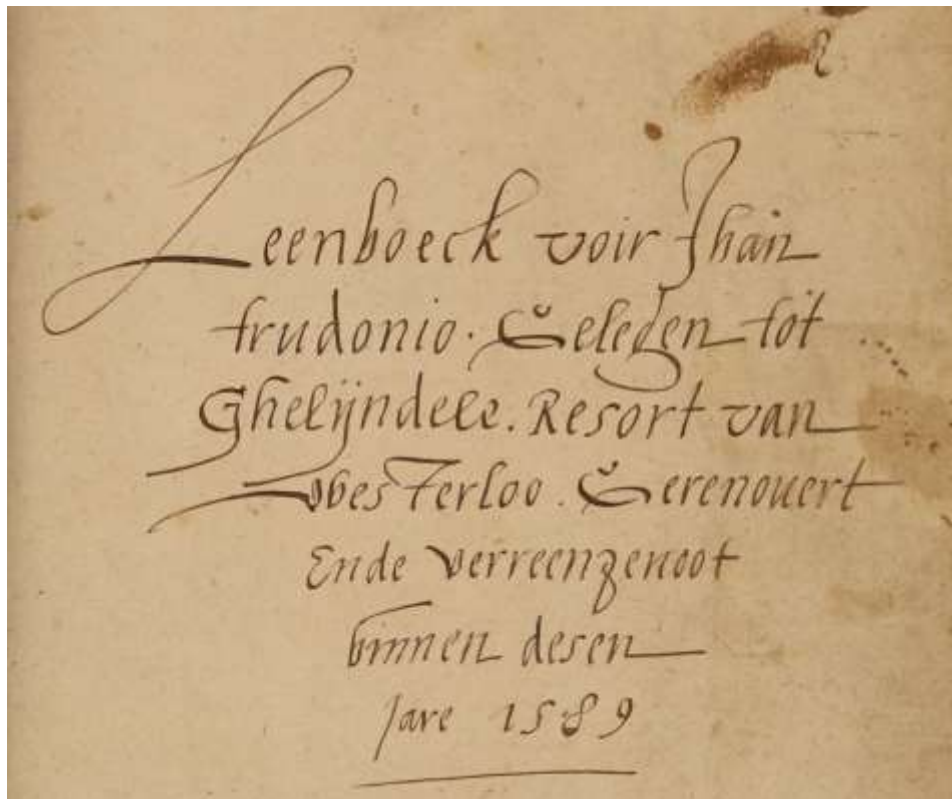 2
Leenboeck voir Jhan
trudonio. Geleden tot
Ghelijndele. Resort van
Westerloo. Gerenouert
Ende verreengenoot
binnen desen
Jare 1589